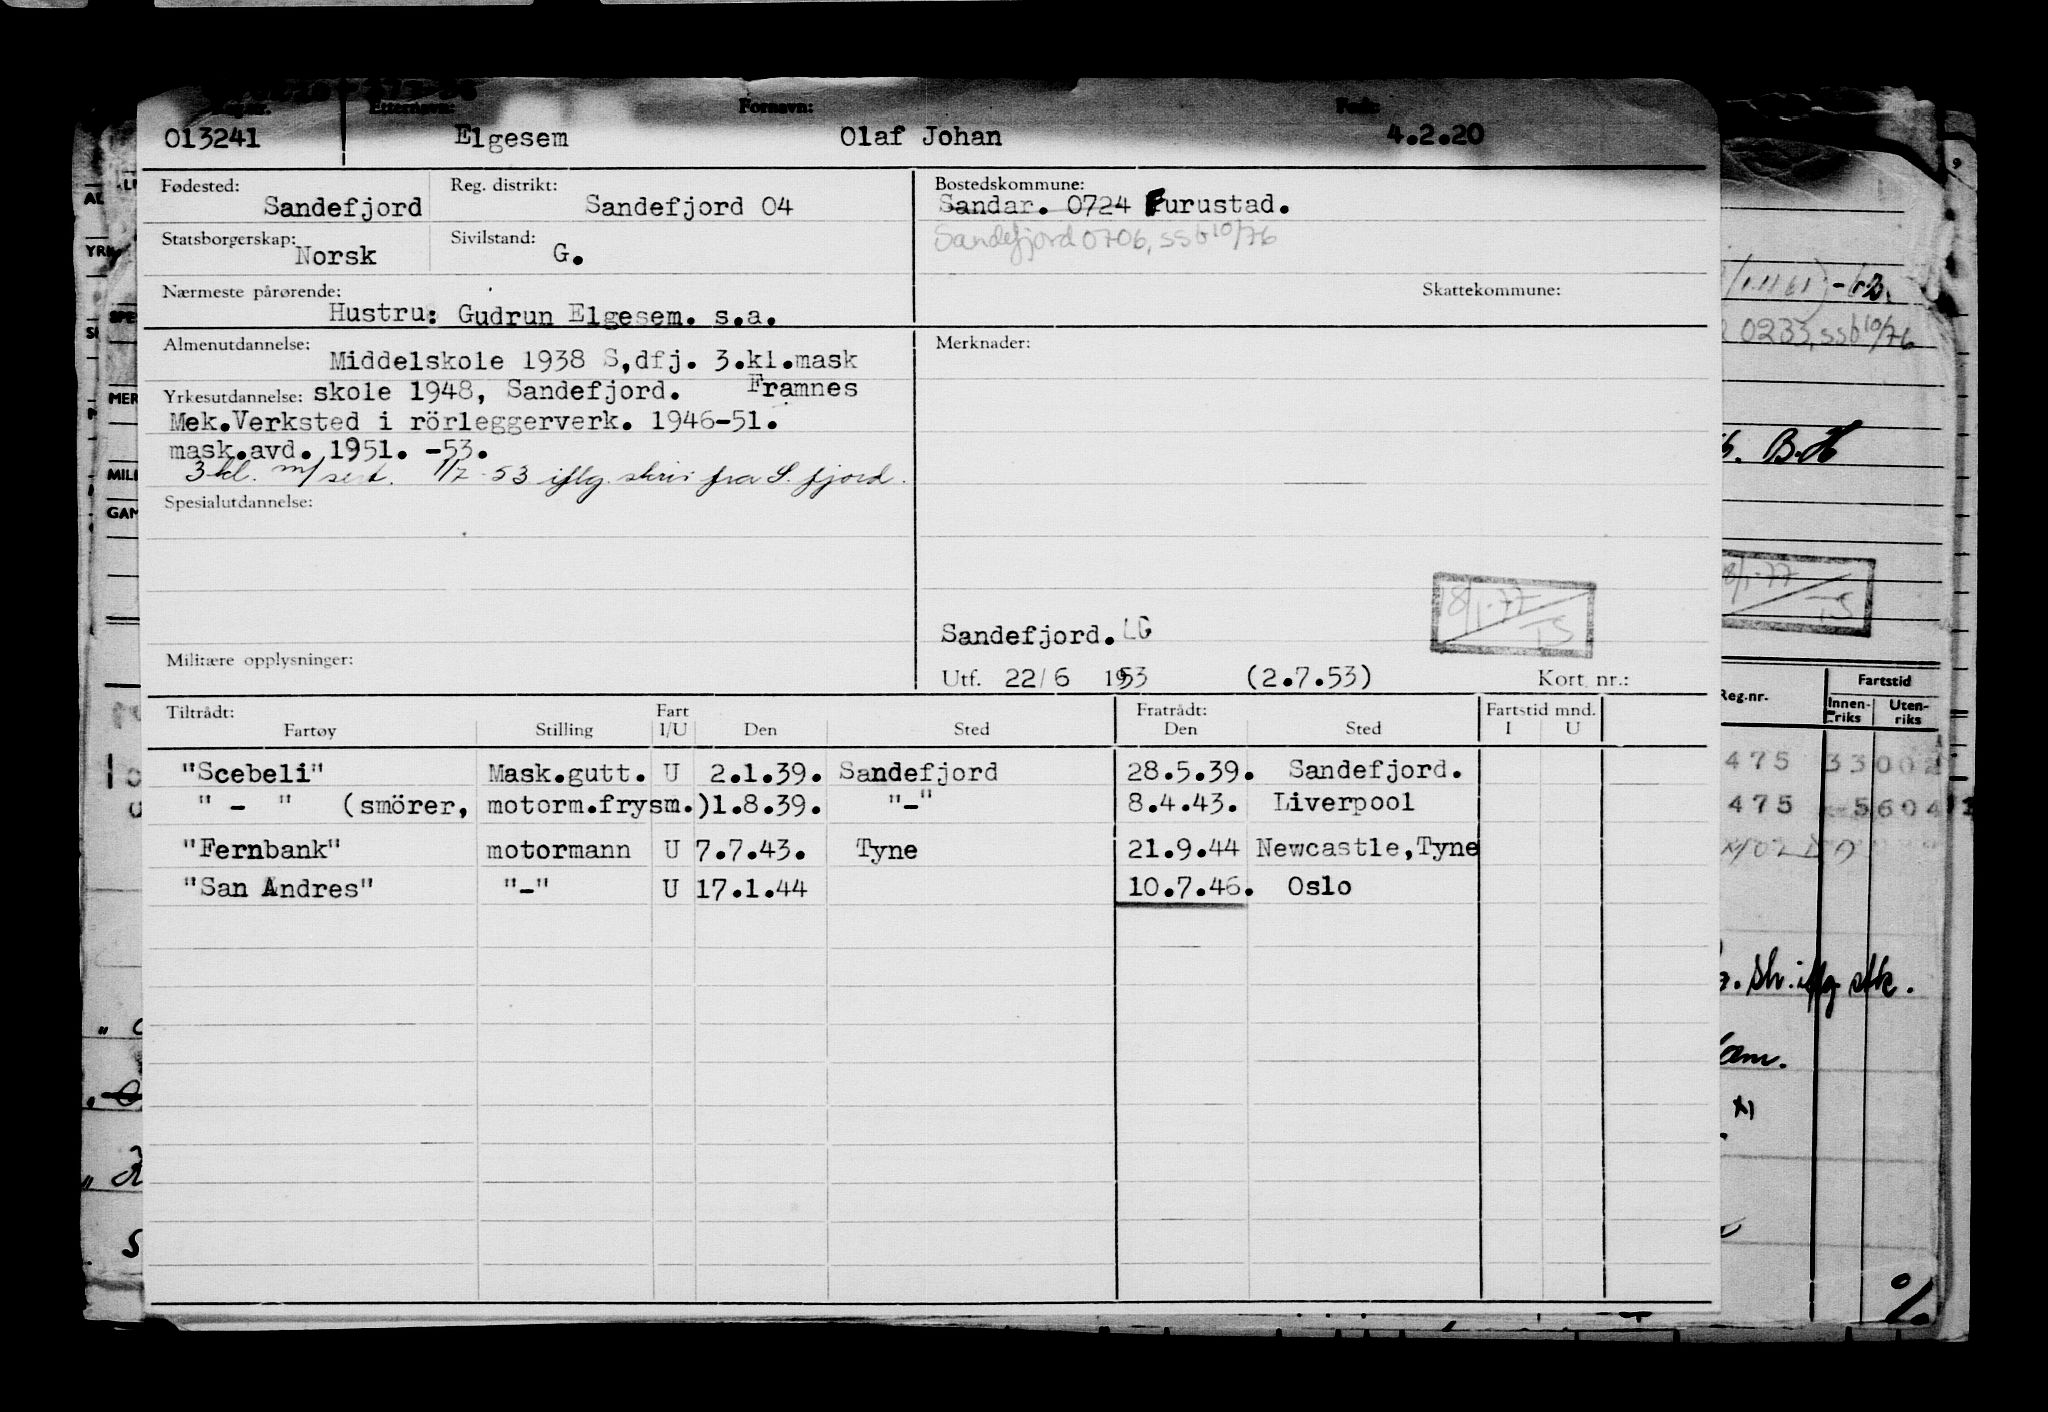 Reg.nr. Etternavn: Fornavn: Født:
013241 Elgesem Olaf Johan 4.2.20
Fødested: Sandefjord Reg. distrikt: Sandefjord 04
Statsborgerskap: Norsk Sivilstand: G.
Nærmeste pårørende: Hustru: Gudrun Elgesem. s.a.
Bostedskommune:
Sandar. 0724 Furustad.
Sandefjord 0706, ssb 10/76
Skattekommune:
Almenutdannelse: Middelskole 1938 S,dfj. 3.kl.mask
Yrkesutdannelse: skole 1948, Sandefjord. Framnes
Mek.Verksted i rörleggerverk. 1946-51.
mask.avd. 1951. -53.
3 kl. m/sert. 1/7-53 iflg. skriv fra S. fjord.
Spesialutdannelse:
Militære opplysninger:
Merknader:
18/1-77 TS
Sandefjord. LG
Utf. 22/6 1953 (2.7.53) Kort nr.:
Tiltrådt: Fart Fratrådt: Fartstid mnd.
Fartøy Stilling I/U Den Sted Den Sted I U
"Scebeli" Mask.gutt. U 2.1.39. Sandefjord 28.5.39. Sandefjord.
" - " (smörer, motorm.frysm.) 1.8.39. "-" 8.4.43. Liverpool
"Fernbank" motormann U 7.7.43. Tyne 21.9.44 Newcastle,Tyne
"San Andres" "-" U 17.1.44 10.7.46. Oslo
0233, ssb 10/76
B.H
18/1-77 TS
Reg.nr. Fartstid
Innenriks Utenriks
475 33002
475 5604
iflg. stk.